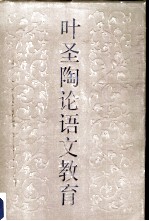 叶圣陶论语文教育